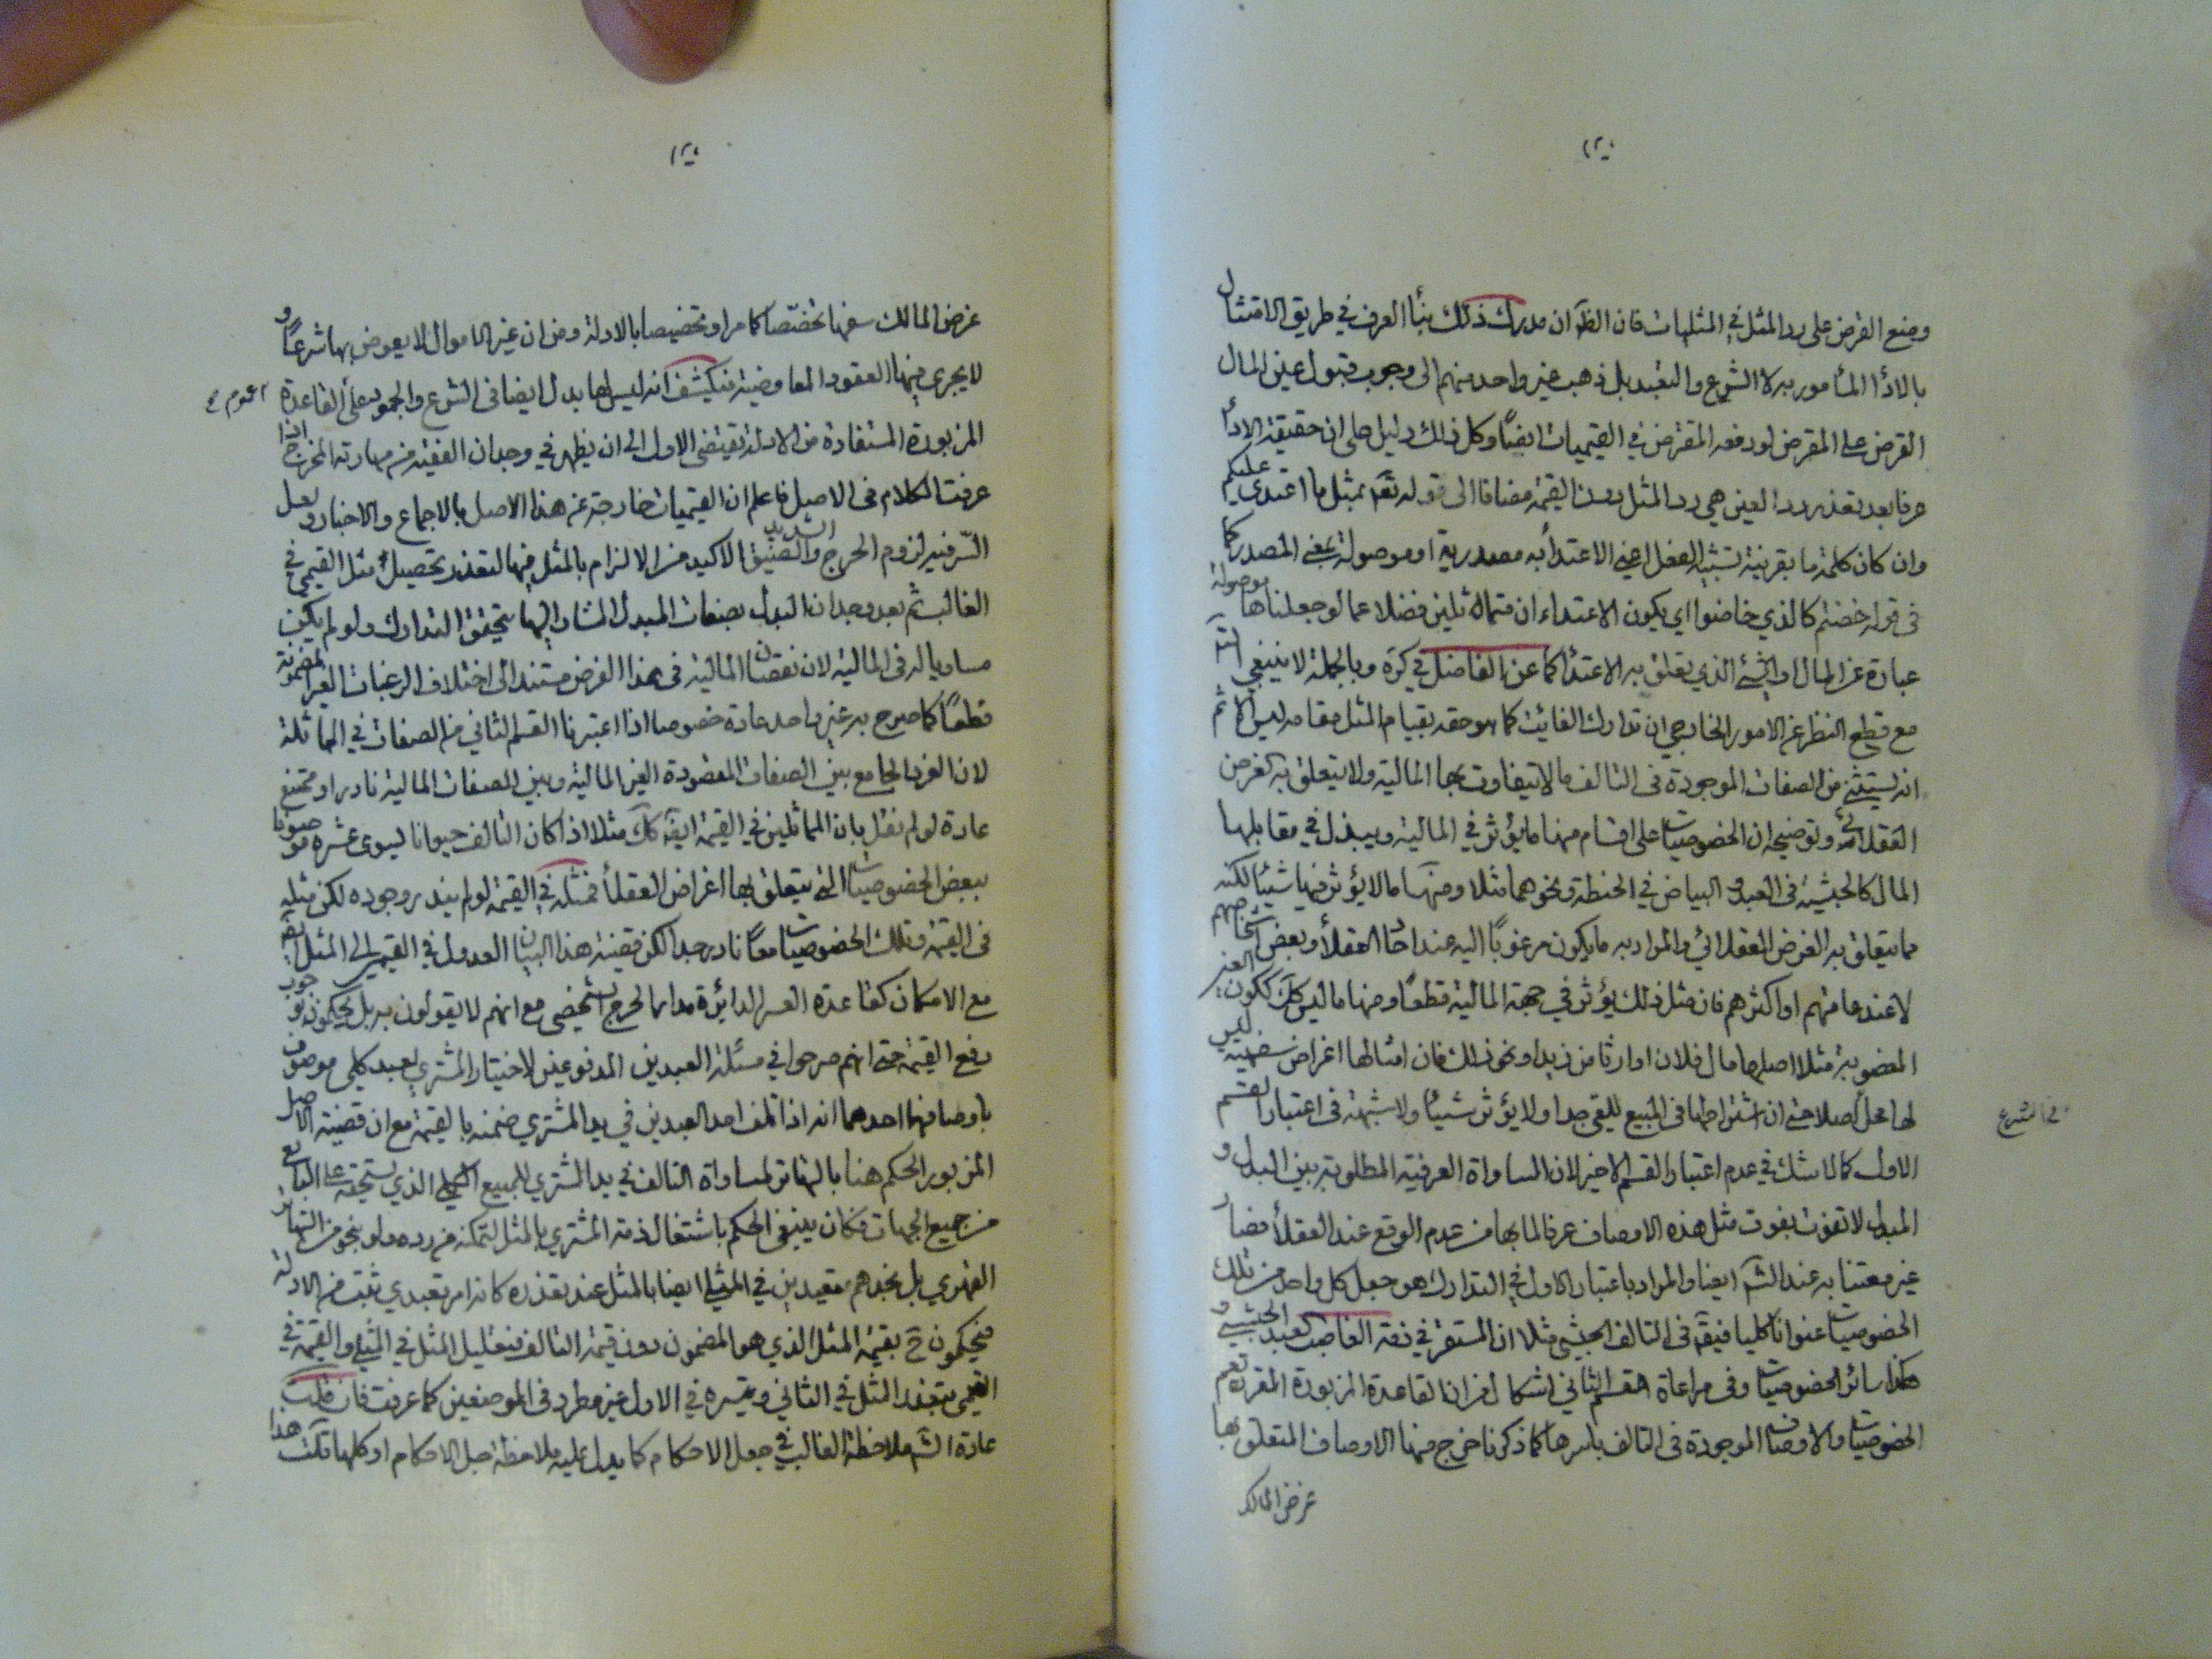 وضع القرض على رد المثل في المثليات فان الظ ان مدرك ذلك بنأ العرف في طريق الامتثال
بالادأ المأمور به لا الشرع والتعبد بل ذهب غير واحد منهم الى وجوب قبول عين المال
القرض على المقرض لو دفعه المقترض في القيميات ايضًا وكل ذلك دليل على ان حقيقة الادأ
عرفا بعد تعذر رد العين هي رد المثل دون القيمة مضافا الى قوله تع بمثل ما اعتدى عليكم
وان كان كلمة ما بقرينة تشبيه الفعل اعني الاعتدأ به مصدرية او موصولة بمعنى المصدر كما
في قوله خضتم كالذي خاضوا اي يكون الاعتداءان متماثلين فضلا عما لو جعلناها موصولة
عبارة عن المال والشئ الذي يتعلق به الاعتدأ كما عن الفاضل في كره وبالجملة لا ينبغي
مع قطع النظر عن الامور الخارجي ان تدارك الفائت كما هو حقه بقيام المثل مقامه ليس الا ثم
انه يستثنى من الصفات الموجودة في التالف ما لا يتفاوت بها المالية ولا يتعلق به غرض
العقلائي وتوضيحه ان الخصوصيات على اقسام منها ما يؤثر في المالية ويبذل في مقابلها
المال كالحبشية في العبد و البياض في الحنطة ونحوهما مثلا ومنها ما لا يؤثر فيها شيئا لكنه
مما يتعلق به الغرض العقلائي والمراد به ما يكون مرغوبًا اليه عند احاد العقلأ وبعض اشخاصهم
لا عند عامتهم او اكثرهم فان مثل ذلك يؤثر في جهة المالية قطعًا ومنها ما ليس كك ككون العين
المغصوبة مثلا اصلها مال فلان او ارثا من زيد او نحو ذلك فان امثالها اغراض سفهية ليس
لها محل اصلا حتى ان اشتراطها في المبيع يلغى جدا ولا يؤثر شيئًا ولا شبهة في اعتبار القسم
في الشرع
الاول كما لا شك في عدم اعتبار القسم الاخير لان المساواة العرفية المطلوبة بين البدل و
المبدل لا تفوت بفوت مثل هذه الاوصاف عرفا لما بها من عدم الوقع عند العقلأ فصار
غير معتنا به عند الش ايضا والمراد باعتبار الاول في التدارك هو جعل كل واحد من تلك
الخصوصيات عنوانا كليا فيق في التالف الحبشي مثلا ان المستقر في ذمة الغاصب العبد الحبشي و
هكذا سائر الخصوصيات وفي مراعاة القسم الثاني اشكال من ان القاعدة المزبورة المقررة تعم
الخصوصيات والاوصاف الموجودة في التالف باسرها كما ذكرنا خرج منها الاوصاف المتعلق بها
غرض المالك
غرض المالك سفها تخصّصا كما مر او تخصيصا بالادلة ومن ان غير الاموال لا يعوض بها شرعًا و
لا يجري فيها العقود المعاوضية فيكشف انه ليس لها بدل ايضا في الشرع والجمود على القاعدة
المزبورة المستفادة من الادلة يقتضي الاول الى ان يظهر في وجدان الفقيه من مهارته المخرج اذا
عرفت الكلام في الاصيل فاعلم ان القيميات خارجة عن هذا الاصل بالاجماع والاخبار ولعل
السّر فيه لزوم الحرج والضيق الشديد الاكيد من الالزام بالمثل فيها لتعذر تحصيل مثل القيمي في
الغالب ثم بعد وجدان البدل بصفات المبدل المشار اليها يتحقق التدارك ولو لم يكن
مساويا له في المالية لان نقصان المالية في هذا الفرض مستند الى اختلاف الرغبات الغير المضمونة
قطعًا كما صرح به غير واحد عادة خصوصا اذا اعتبرنا القسم الثاني من الصفات في المماثلة
لان الفرد الجامع بين الصفات المقصودة الغير المالية وبين الصفات المالية نادر او ممتنع
عادة لو لم نقل بان المماثلين في القيمة ايض كك مثلا اذا كان التالف حيوانا ليسوى عشرة موصوفا
ببعض الخصوصيات التي يتعلق بها اغراض العقلأ فمثله في القيمة لو لم يندر وجوده لكن مثله
في القيمة وتلك الخصوصيات معًا نادر جدا لكن قضية هذا البيان العدول في القيمي الى المثل ايض
مع الامكان كقاعدة العسر الدائرة مدار الحرج الشخصي مع انهم لا يقولون به بل يحكمون بوجوب
دفع القيمة حتى انهم صرحوا في مسئلة العبدين المدفوعين لاختيار المشتري لعبد كلي موصوف
باوصافهما احدهما انه اذا تلف احد العبدين في يد المشتري ضمنه بالقيمة مع ان قضية الاصل
المزبور الحكم هنا بالتهاتر لمساواة التالف في يد المشتري للمبيع الكلي الذي يستحقه على البائع
من جميع الجهات فكان ينبغي الحكم باشتغال ذمة المشتري بالمثل لتمكنه من رده ولو بنحو من التهاتر
القهري بل نجدهم مقيدين في المثلي ايضا بالمثل عند تعذره كانه امر تعبدي ثبت من الادلة
فيحكمون ح بقيمة المثل الذي هو المضمون دون قيمة التالف فتعليل المثل في المثلي والقيمة في
القيمي بتعذر المثل في الثاني وتيسره في الاول غير مطرد في الموضعين كما عرفت فان قلت
عادة الش ملاحظة الغالب في جعل الاحكام كما يدل عليه ملاحظة جل الاحكام او كلها قلت هذا